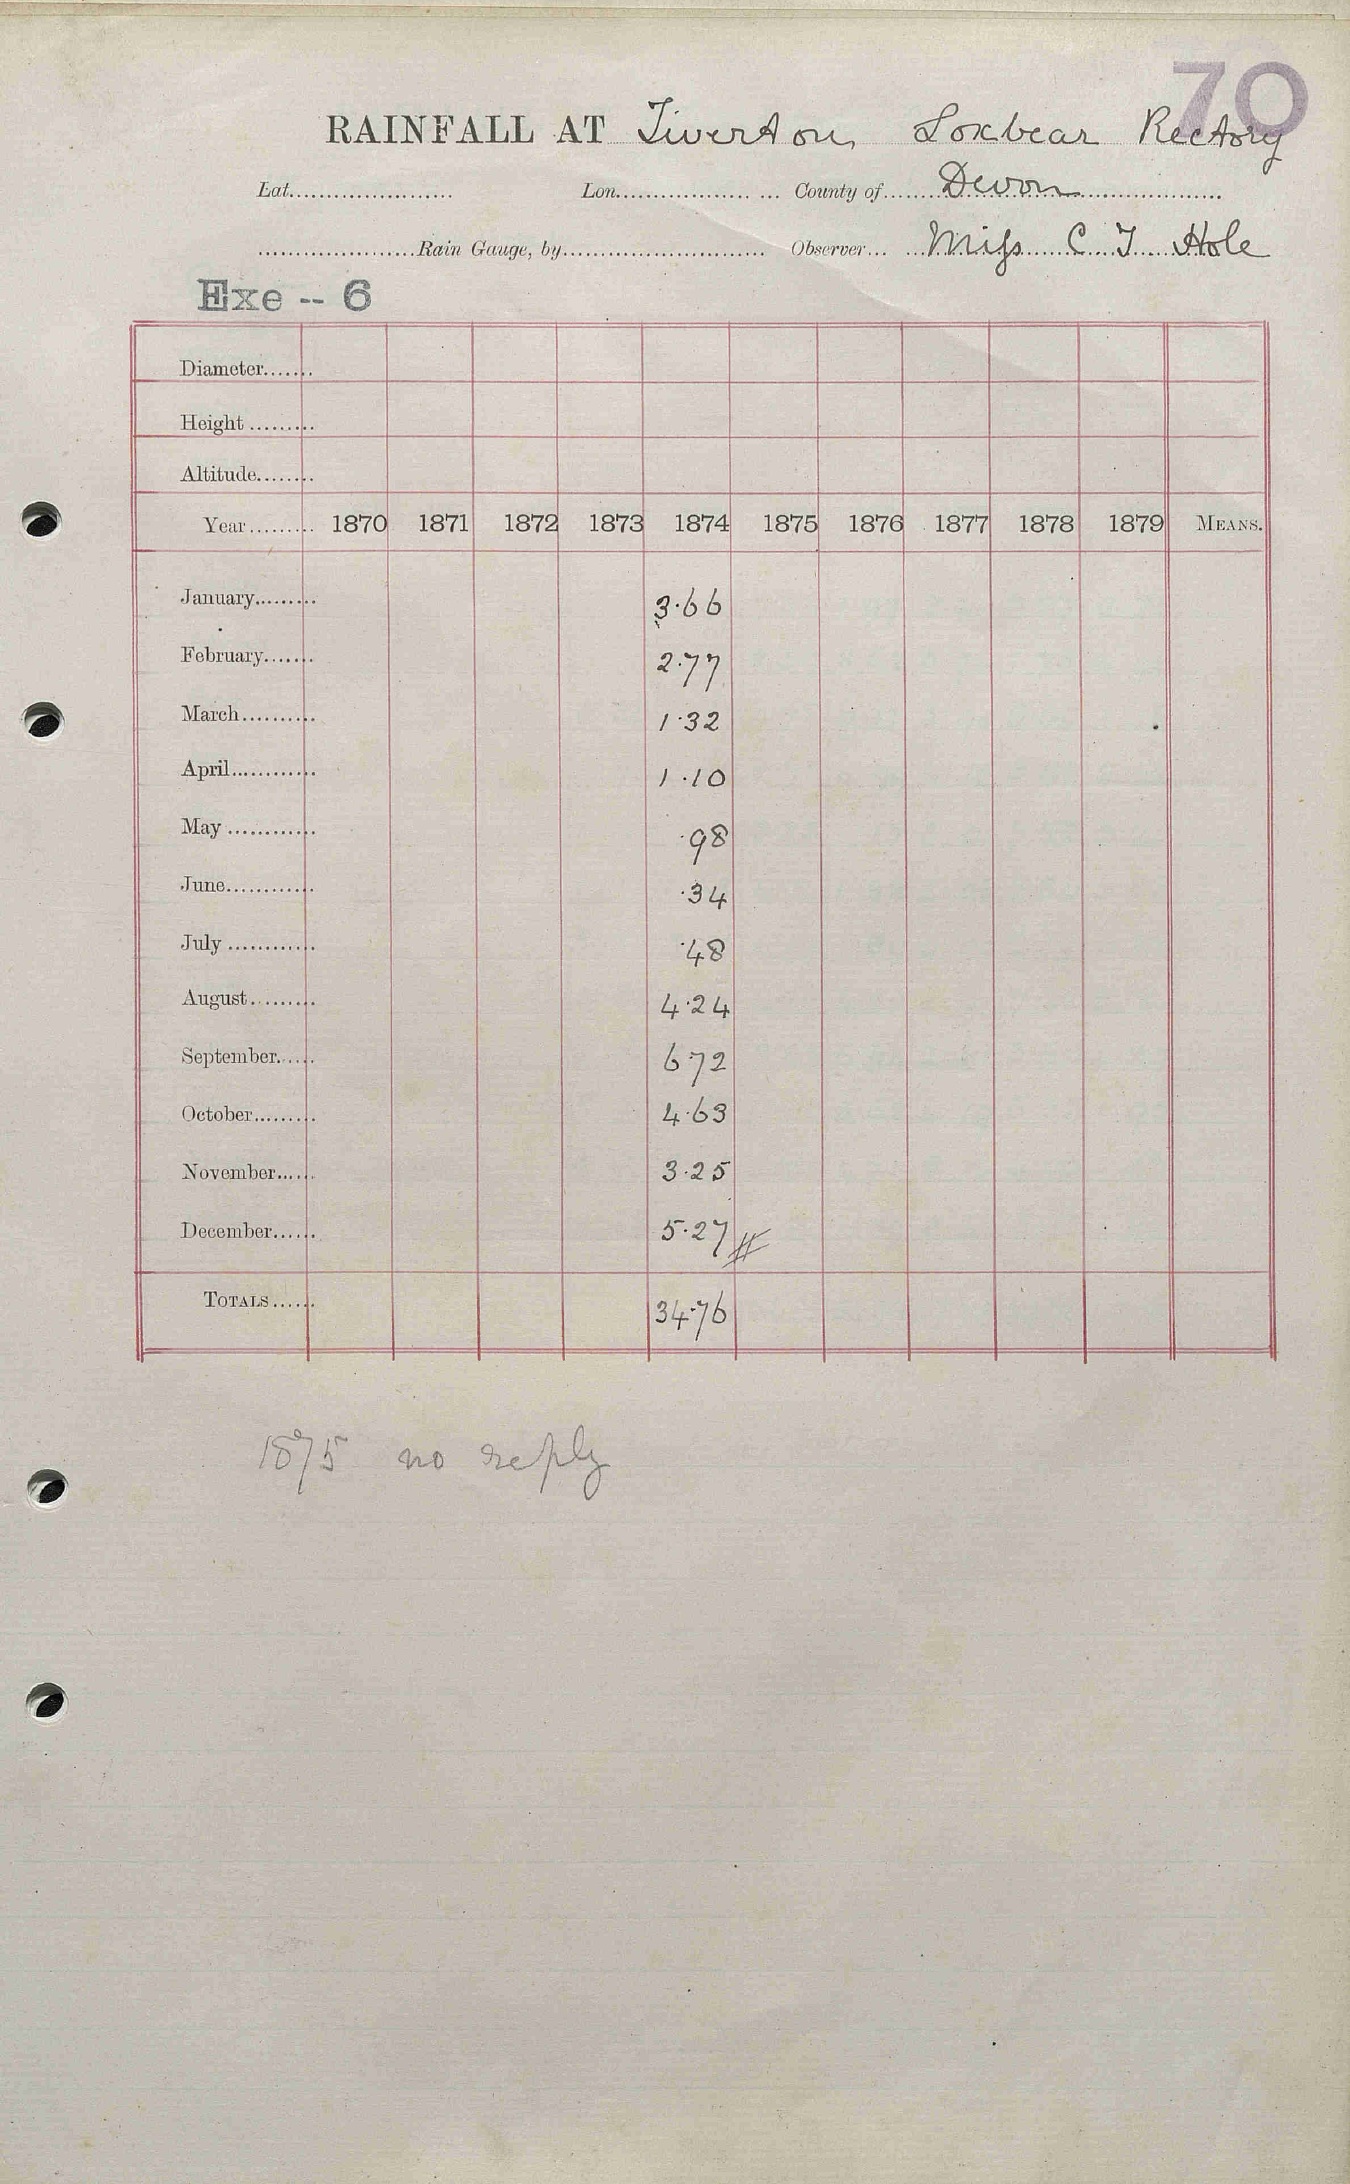 70
RAINFALL AT Tiverton, Loxbear Rectory
Lat..................... Lon.................. ... County of Devon
.....................Rain Gauge, by........................... Observer... Miss C T Hole
Exe -- 6
Diameter.......
Height .........
Altitude........
Year......... 1870 1871 1872 1873 1874 1875 1876 1877 1878 1879 MEANS.
January......... 3.66
February....... 2.77
March.......... 1.32
April............ 1.10
May ............ .98
June............ .34
July ............ .48
August......... 4.24
September...... 6 72
October......... 4.63
November...... 3.25
December...... 5.27 #
TOTALS...... 34.76
1875 no reply